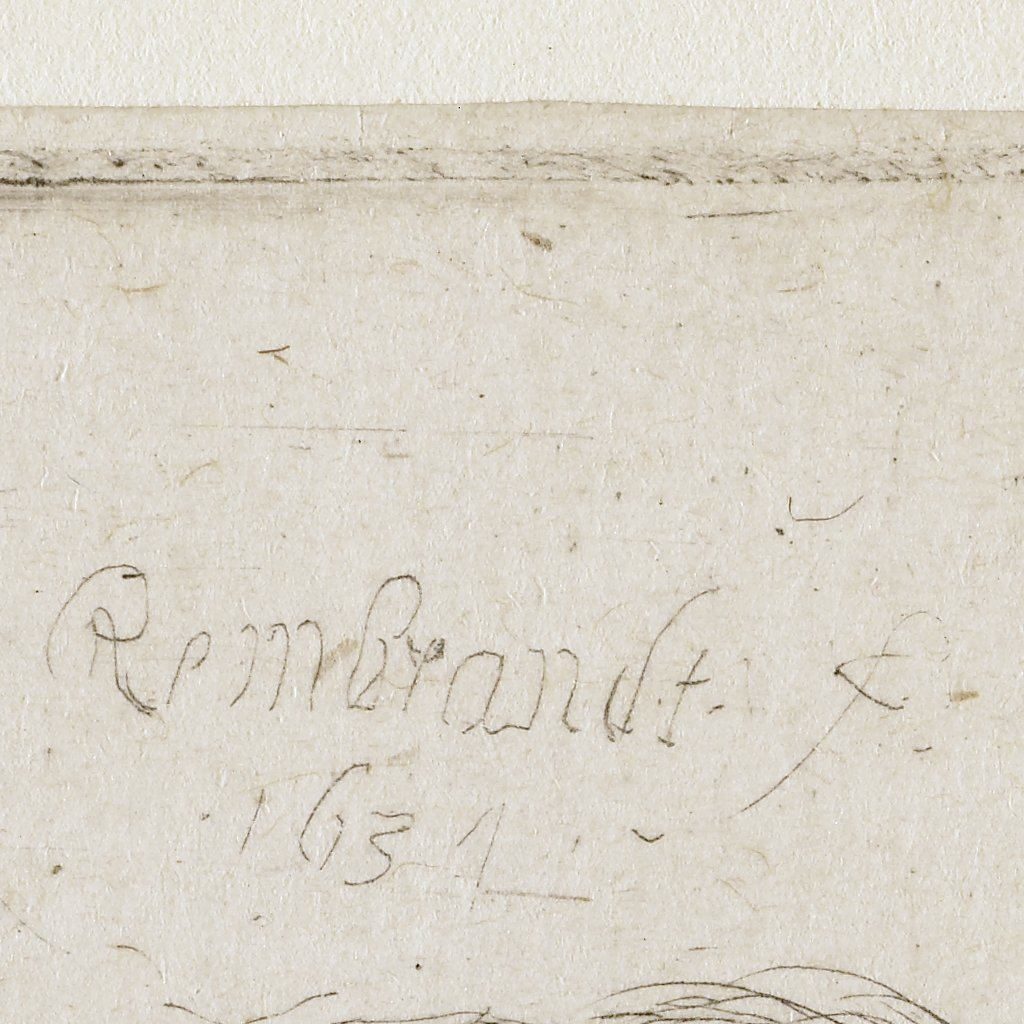 Rembrandt. f.
1634